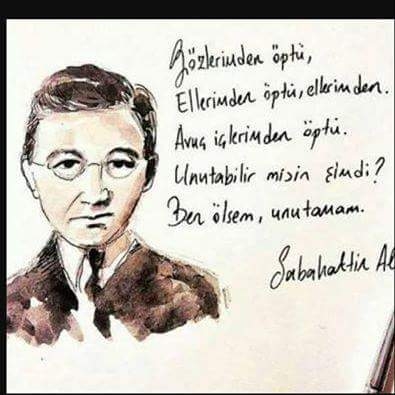 Gözlerinden öptü,
Ellerinden öptü, ellerinden.
Avuç içlerinden öptü.
Unutabilir misin şimdi?
Ben ölsem, unutamam.
Sabahattin Al